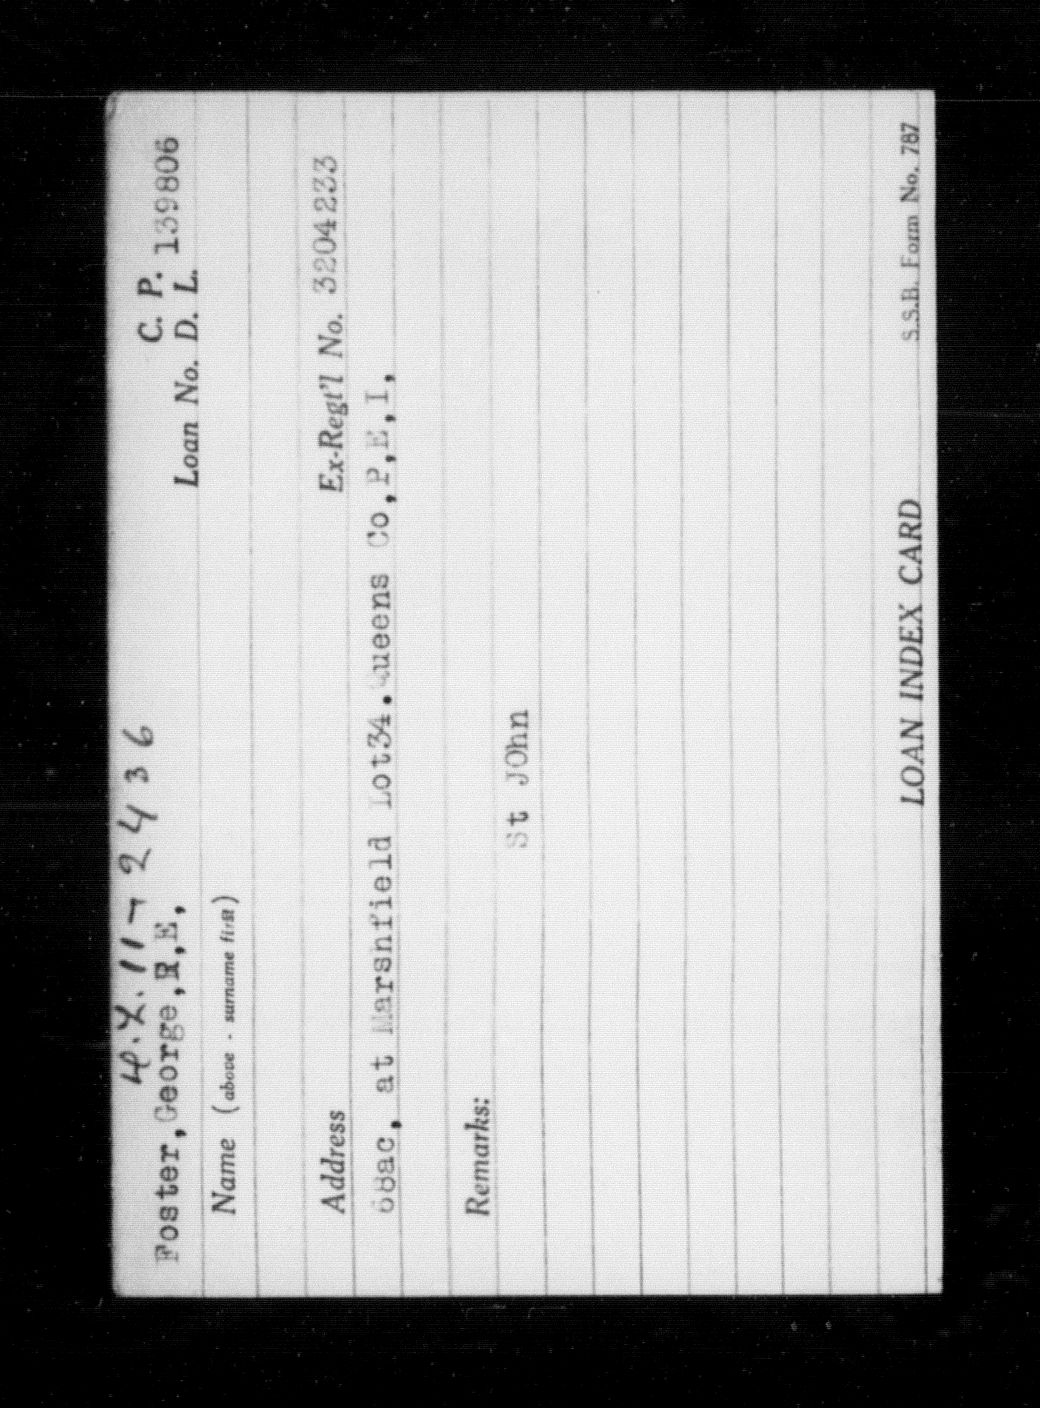 4.2.11-2436
C. P.
Foster,George,R,E,
Loan No. D. L. 139806
Name (above - surname first)
Address
Ex-Regt'l No. 3204233
68ac, at Marshfield Lot34.Queens Co,P,E,I,
Remarks:
St JOhn
LOAN INDEX CARD
S.S.B. Form No. 787